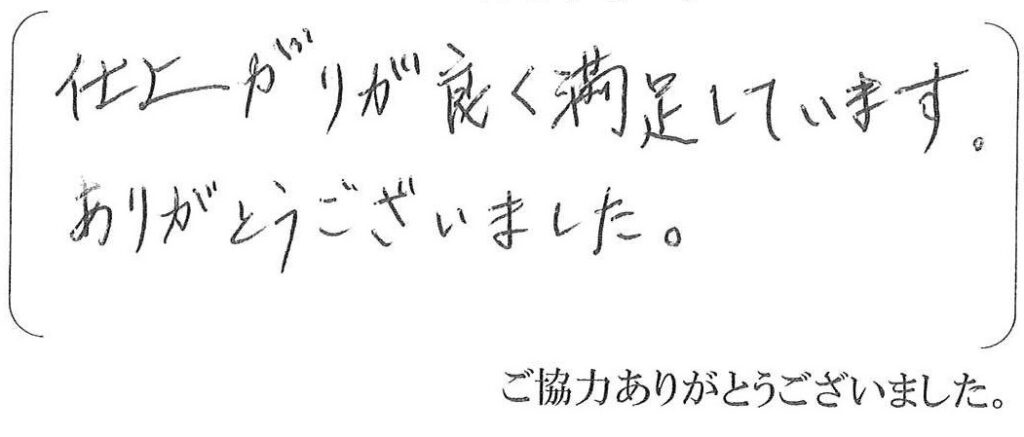 仕上がりが良く満足しています。
ありがとうございました。
ご協力ありがとうございました。